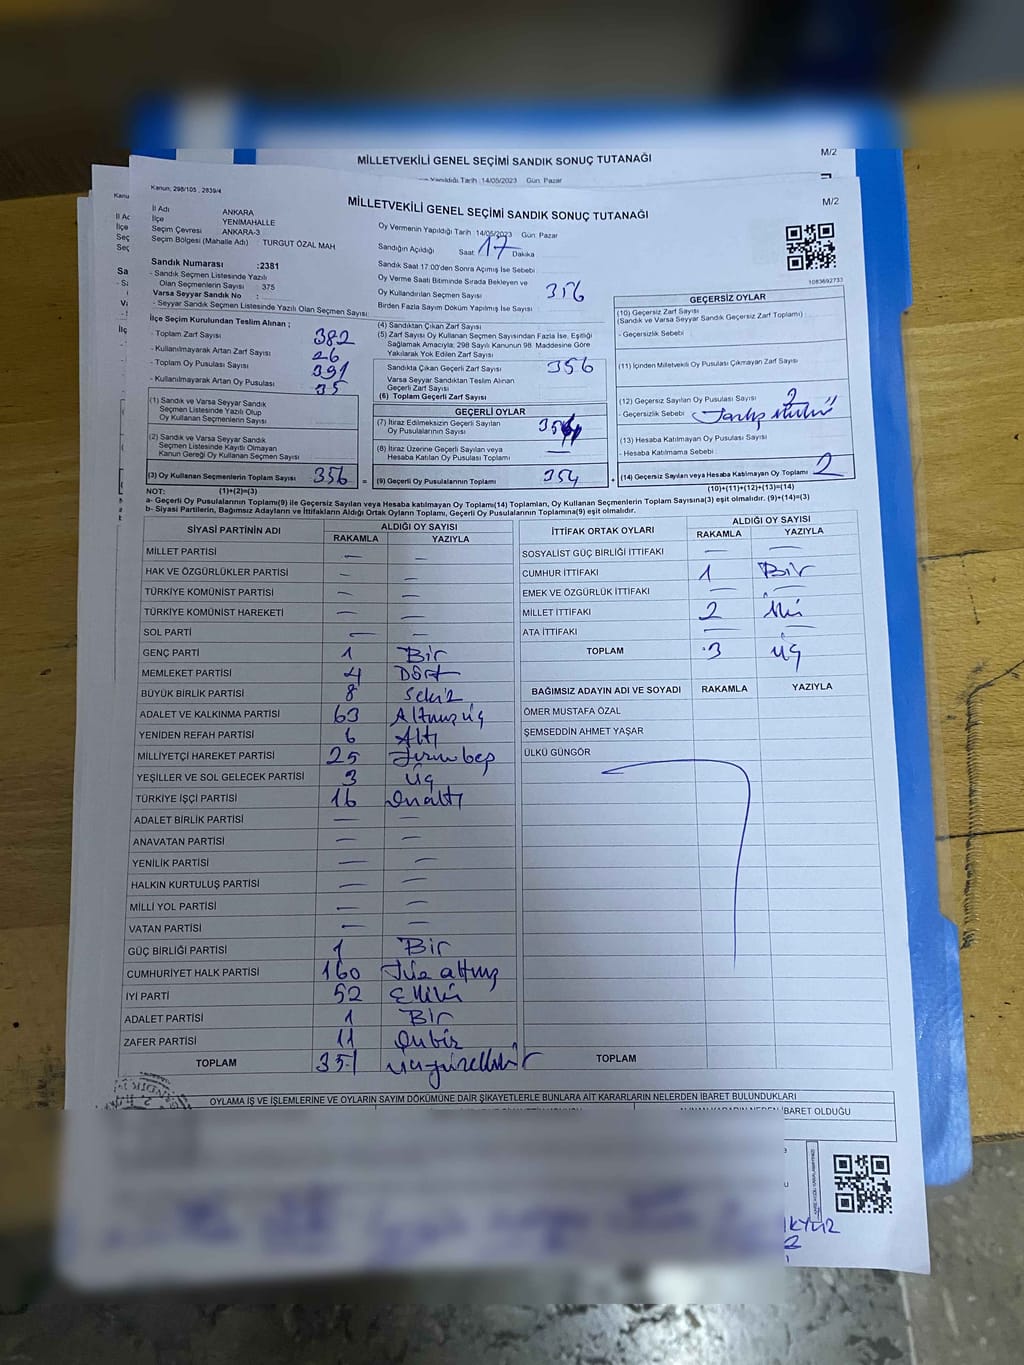 MİLLETVEKİLİ GENEL SEÇİMİ SANDIK SONUÇ TUTANAĞI
M/2
Yapıldığı Tarih :14/05/2023 Gün: Pazar
Kanun: 298/105 , 2839/4
MİLLETVEKİLİ GENEL SEÇİMİ SANDIK SONUÇ TUTANAĞI
M/2
İl Adı ANKARA
İlçe YENİMAHALLE
Seçim Çevresi ANKARA-3
Seçim Bölgesi (Mahalle Adı) : TURGUT ÖZAL MAH
Oy Vermenin Yapıldığı Tarih :14/05/2023 Gün: Pazar
Sandığın Açıldığı Saat 17 Dakika
Sandık Saat 17:00'den Sonra Açımış İse Sebebi
Sandık Numarası :2381
- Sandık Seçmen Listesinde Yazılı
Olan Seçmenlerin Sayısı : 375
Varsa Seyyar Sandık No :
- Seyyar Sandık Seçmen Listesinde Yazılı Olan Seçmen Sayısı
Oy Verme Saati Bitiminde Sırada Bekleyen ve
Oy Kullandırılan Seçmen Sayısı 356
Birden Fazla Sayım Döküm Yapılmış İse Sayısı :
1083692733
İlçe Seçim Kurulundan Teslim Alınan ;
- Toplam Zarf Sayısı 382
- Kullanılmayarak Artan Zarf Sayısı 26
- Toplam Oy Pusulası Sayısı 391
- Kullanılmayarak Artan Oy Pusulası 35
(1) Sandık ve Varsa Seyyar Sandık
Seçmen Listesinde Yazılı Olup
Oy Kullanan Seçmenlerin Sayısı
(2) Sandık ve Varsa Seyyar Sandık
Seçmen Listesinde Kayıtlı Olmayan
Kanun Gereği Oy Kullanan Seçmen Sayısı
(3) Oy Kullanan Seçmenlerin Toplam Sayısı 356 =
(1)+(2)=(3)
(4) Sandıktan Çıkan Zarf Sayısı
(5) Zarf Sayısı Oy Kullanan Seçmen Sayısından Fazla İse, Eşitliği
Sağlamak Amacıyla; 298 Sayılı Kanunun 98. Maddesine Göre
Yakılarak Yok Edilen Zarf Sayısı
Sandıkta Çıkan Geçerli Zarf Sayısı 356
Varsa Seyyar Sandıktan Teslim Alınan
Geçerli Zarf Sayısı
(6) Toplam Geçerli Zarf Sayısı
GEÇERLİ OYLAR
(7) İtiraz Edilmeksizin Geçerli Sayılan
Oy Pusulalarının Sayısı
(8) İtiraz Üzerine Geçerli Sayılan veya
Hesaba Katılan Oy Pusulası Toplamı —
(9) Geçerli Oy Pusulalarının Toplamı 354 +
GEÇERSİZ OYLAR
(10) Geçersiz Zarf Sayısı
(Sandık ve Varsa Seyyar Sandık Geçersiz Zarf Toplamı)
- Geçersizlik Sebebi :
(11) İçinden Milletvekili Oy Pusulası Çıkmayan Zarf Sayısı
(12) Geçersiz Sayılan Oy Pusulası Sayısı 2
- Geçersizlik Sebebi :
(13) Hesaba Katılmayan Oy Pusulası Sayısı
- Hesaba Katılmama Sebebi :
(14) Geçersiz Sayılan veya Hesaba Katılmayan Oy Toplamı 2
(10)+(11)+(12)+(13)=(14)
NOT:
a- Geçerli Oy Pusulalarının Toplamı(9) ile Geçersiz Sayılan veya Hesaba katılmayan Oy Toplamı(14) Toplamları, Oy Kullanan Seçmenlerin Toplam Sayısına(3) eşit olmalıdır. (9)+(14)=(3)
b- Siyasi Partilerin, Bağımsız Adayların ve İttifakların Aldığı Ortak Oyların Toplamı, Geçerli Oy Pusulalarının Toplamına(9) eşit olmalıdır.
SİYASİ PARTİNİN ADI ALDIĞI OY SAYISI
RAKAMLA YAZIYLA
MİLLET PARTİSİ — —
HAK VE ÖZGÜRLÜKLER PARTİSİ — —
TÜRKİYE KOMÜNİST PARTİSİ — —
TÜRKİYE KOMÜNİST HAREKETİ — —
SOL PARTİ — —
GENÇ PARTİ 1 Bir
MEMLEKET PARTİSİ 4 Dört
BÜYÜK BİRLİK PARTİSİ 8 Sekiz
ADALET VE KALKINMA PARTİSİ 63 Altmış üç
YENİDEN REFAH PARTİSİ 6 Altı
MİLLİYETÇİ HAREKET PARTİSİ 25 Yirmi beş
YEŞİLLER VE SOL GELECEK PARTİSİ 3 Üç
TÜRKİYE İŞÇİ PARTİSİ 16 Onaltı
ADALET BİRLİK PARTİSİ — —
ANAVATAN PARTİSİ — —
YENİLİK PARTİSİ — —
HALKIN KURTULUŞ PARTİSİ — —
MİLLİ YOL PARTİSİ — —
VATAN PARTİSİ — —
GÜÇ BİRLİĞİ PARTİSİ 1 Bir
CUMHURİYET HALK PARTİSİ 160 Yüz altmış
İYİ PARTİ 52 Elliiki
ADALET PARTİSİ 1 Bir
ZAFER PARTİSİ 11 Onbir
TOPLAM 351 Üçyüzellibir
İTTİFAK ORTAK OYLARI ALDIĞI OY SAYISI
RAKAMLA YAZIYLA
SOSYALİST GÜÇ BİRLİĞİ İTTİFAKI — —
CUMHUR İTTİFAKI 1 Bir
EMEK VE ÖZGÜRLÜK İTTİFAKI — —
MİLLET İTTİFAKI 2 İki
ATA İTTİFAKI — —
TOPLAM 3 Üç
BAĞIMSIZ ADAYIN ADI VE SOYADI RAKAMLA YAZIYLA
ÖMER MUSTAFA ÖZAL
ŞEMSEDDİN AHMET YAŞAR
ÜLKÜ GÜNGÖR
TOPLAM
OYLAMA İŞ VE İŞLEMLERİNE VE OYLARIN SAYIM DÖKÜMÜNE DAİR ŞİKAYETLERLE BUNLARA AİT KARARLARIN NELERDEN İBARET BULUNDUKLARI
İBARET OLDUĞU